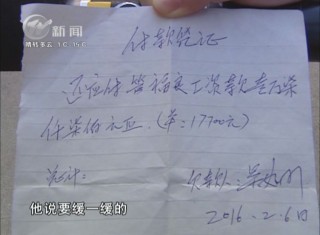 新闻
晴转多云
付款凭证
还应付 福良工资款壹万柒
仟柒佰元正.(17700元)
欠款人:吴
2016.2.6日
他说要缓一缓的